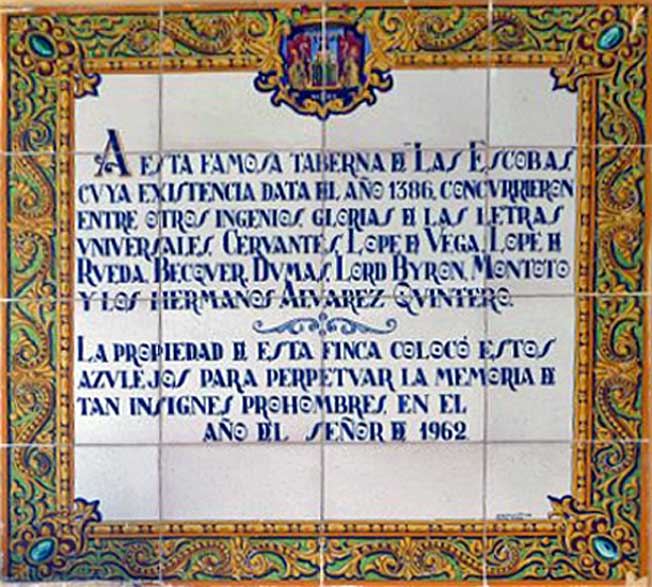 A ESTA FAMOSA TABERNA DE "LAS ESCOBAS",
CVYA EXISTENCIA DATA DEL AÑO 1386, CONCVRRIERON
ENTRE OTROS INGENIOS, GLORIAS DE LAS LETRAS
VNIVERSALES, CERVANTES, LOPE DE VEGA, LOPE DE
RVEDA, BECQVER, DVMAS, LORD BYRON, MONTOTO
Y LOS HERMANOS ALVAREZ QVINTERO.
LA PROPIEDAD DE ESTA FINCA COLOCÓ ESTOS
AZVLEJOS PARA PERPETVAR LA MEMORIA DE
TAN INSIGNES PROHOMBRES, EN EL
AÑO DEL SEÑOR DE 1962